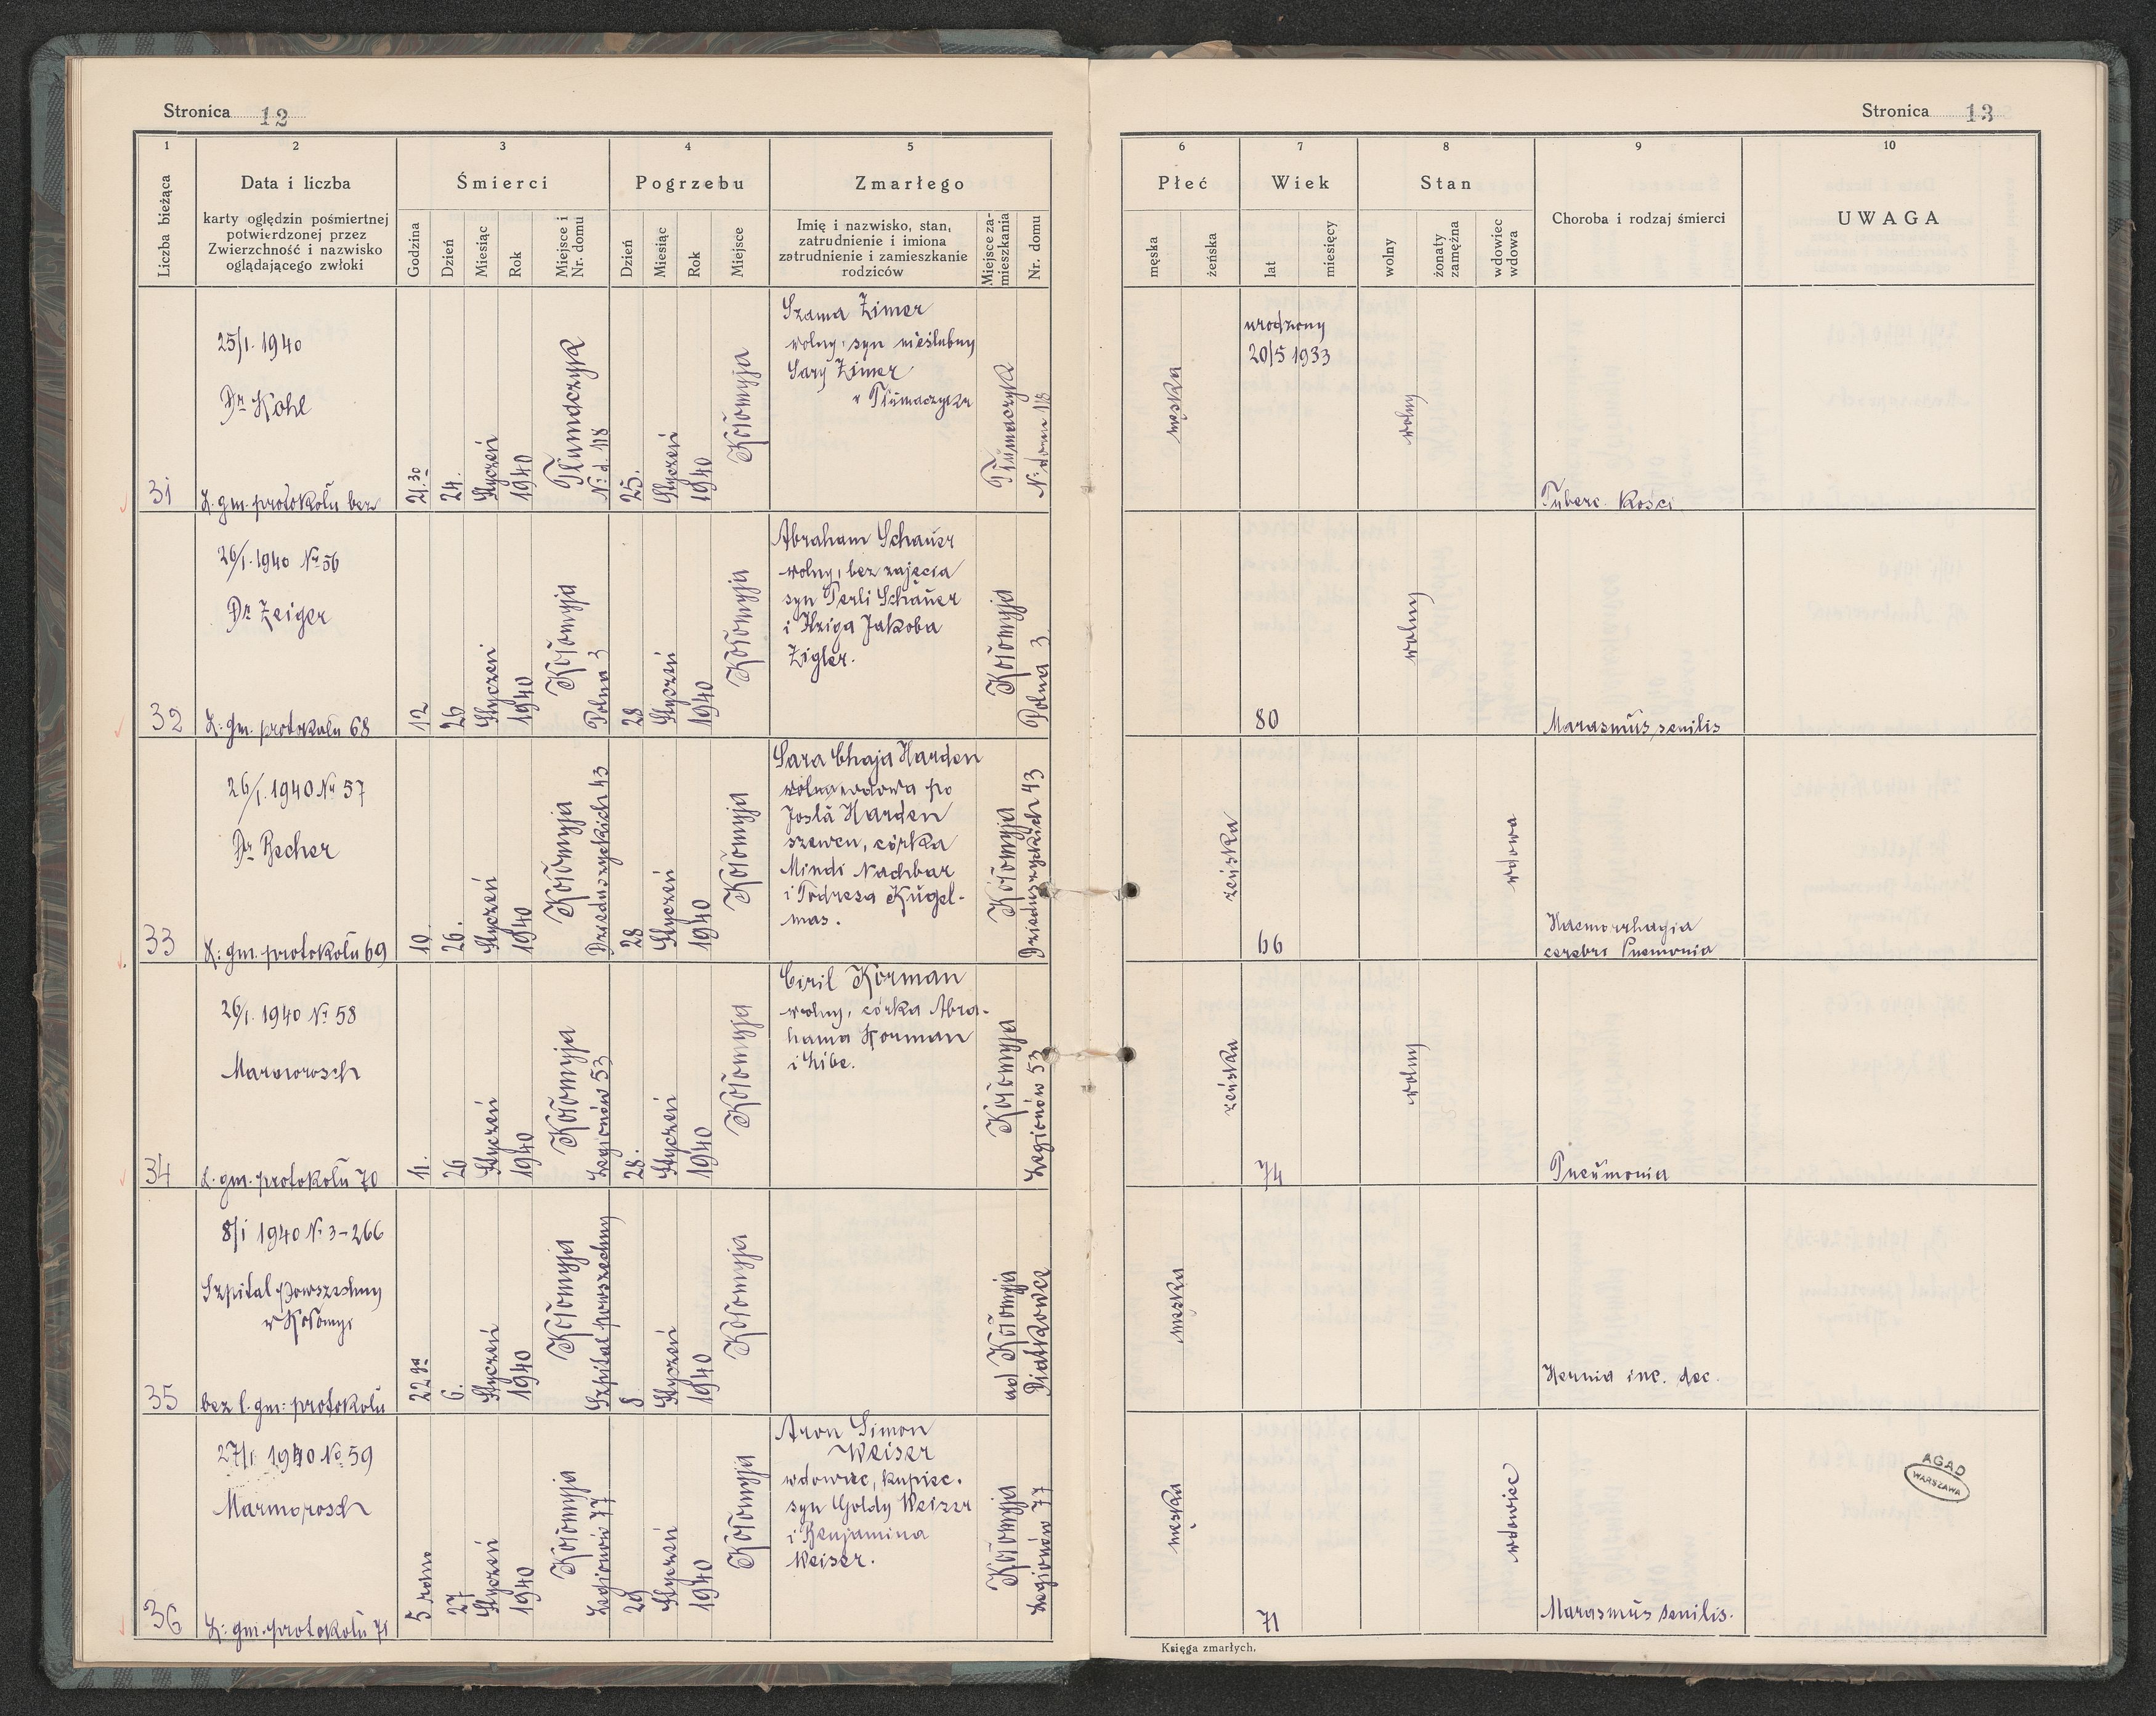 Stronica 12
1
2
3
4
5
Liczba bieżąca
Data i liczba
karty oględzin pośmiertnej
potwierdzonej przez
Zwierzchność i nazwisko
oglądającego zwłoki
Śmierci
Godzina
Dzień
Miesiąc
Rok
Miejsce i
Nr. domu
Pogrzebu
Dzień
Miesiąc
Rok
Miejsce
Zmarłego
Imię i nazwisko, stan,
zatrudnienie i imiona
zatrudnienie i zamieszkanie
rodziców
Miejsce za-
mieszkania
Nr. domu
31
25/I. 1940
Dr Kohl
L. gm. protokołu bez
21.30
24.
Styczeń
1940
Tłumaczyk
No d. 118
25.
Styczeń
1940
Kołomyja
Szama Zimer
wolny, syn nieślubny
Sary Zimer
w Tłumaczyku
Tłumaczyk
No domu 118
32
26/I. 1940 No 56
Dr Zeiger
L: gm. protokołu 68
12
26
Styczeń
1940
Kołomyja
Polna 3
28
Styczeń
1940
Kołomyja
Abraham Schauer
wolny, bez zajęcia
syn Perli Schauer
i Jakoba
Zigler.
Kołomyja
Polna 3
33
26/I. 1940 No 57
Dr Becher
L: gm. protokołu 69
10.
26.
Styczeń
1940
Kołomyja
Dzieduszyckich 43
28
Styczeń
1940
Kołomyja
Sara Chaja Harden
wdowa po
Josla Harden
szewcu, córka
Mindi Nachbar
i Todresa Kugel-
mas.
Kołomyja
Dzieduszyckich 43
34
26/I. 1940 No 58
Marmorosch
L. gm. protokołu 70
11.
26
Styczeń
1940
Kołomyja
Legionów 53
28.
Styczeń
1940
Kołomyja
Ciril Korman
wolny, córka Abra-
hama Korman
i Libe.
Kołomyja
Legionów 53
35
8/I 1940 No 3-266
Szpital powszechny
w Kołomyi
bez l. gm: protokołu
22ga
6.
Styczeń
1940
Kołomyja
Szpital powszechny
8
Styczeń
1940
Kołomyja
ad Kołomyja
Diatkowce
36
27/I 1940 No 59
Marmorosch
L: gm. protokołu 71
5 rano
27
Styczeń
1940
Kołomyja
Legionów 77
29
Styczeń
1940
Kołomyja
Aron Simon
Weiser
wdowiec, kupiec.
syn Goldy Weiser
i Benjamina
Weiser.
Kołomyja
Legionów 77
Stronica 13
6
7
8
9
10
Płeć
męska
żeńska
Wiek
lat
miesięcy
Stan
wolny
żonaty
zamężna
wdowiec
wdowa
Choroba i rodzaj śmierci
UWAGA
męska
urodzony
20/5 1933
wolny
Tuberc. kości
80
wolny
Marasmus senilis
żeńska
66
wdowa
Haemorrhagia
cerebri Pnemonia
żeńska
74
wolny
Pneumonia
męska
Hernia inc. dec.
męska
71
wdowiec
Marasmus senilis.
AGAD
WARSZAWA
Księga zmarłych.